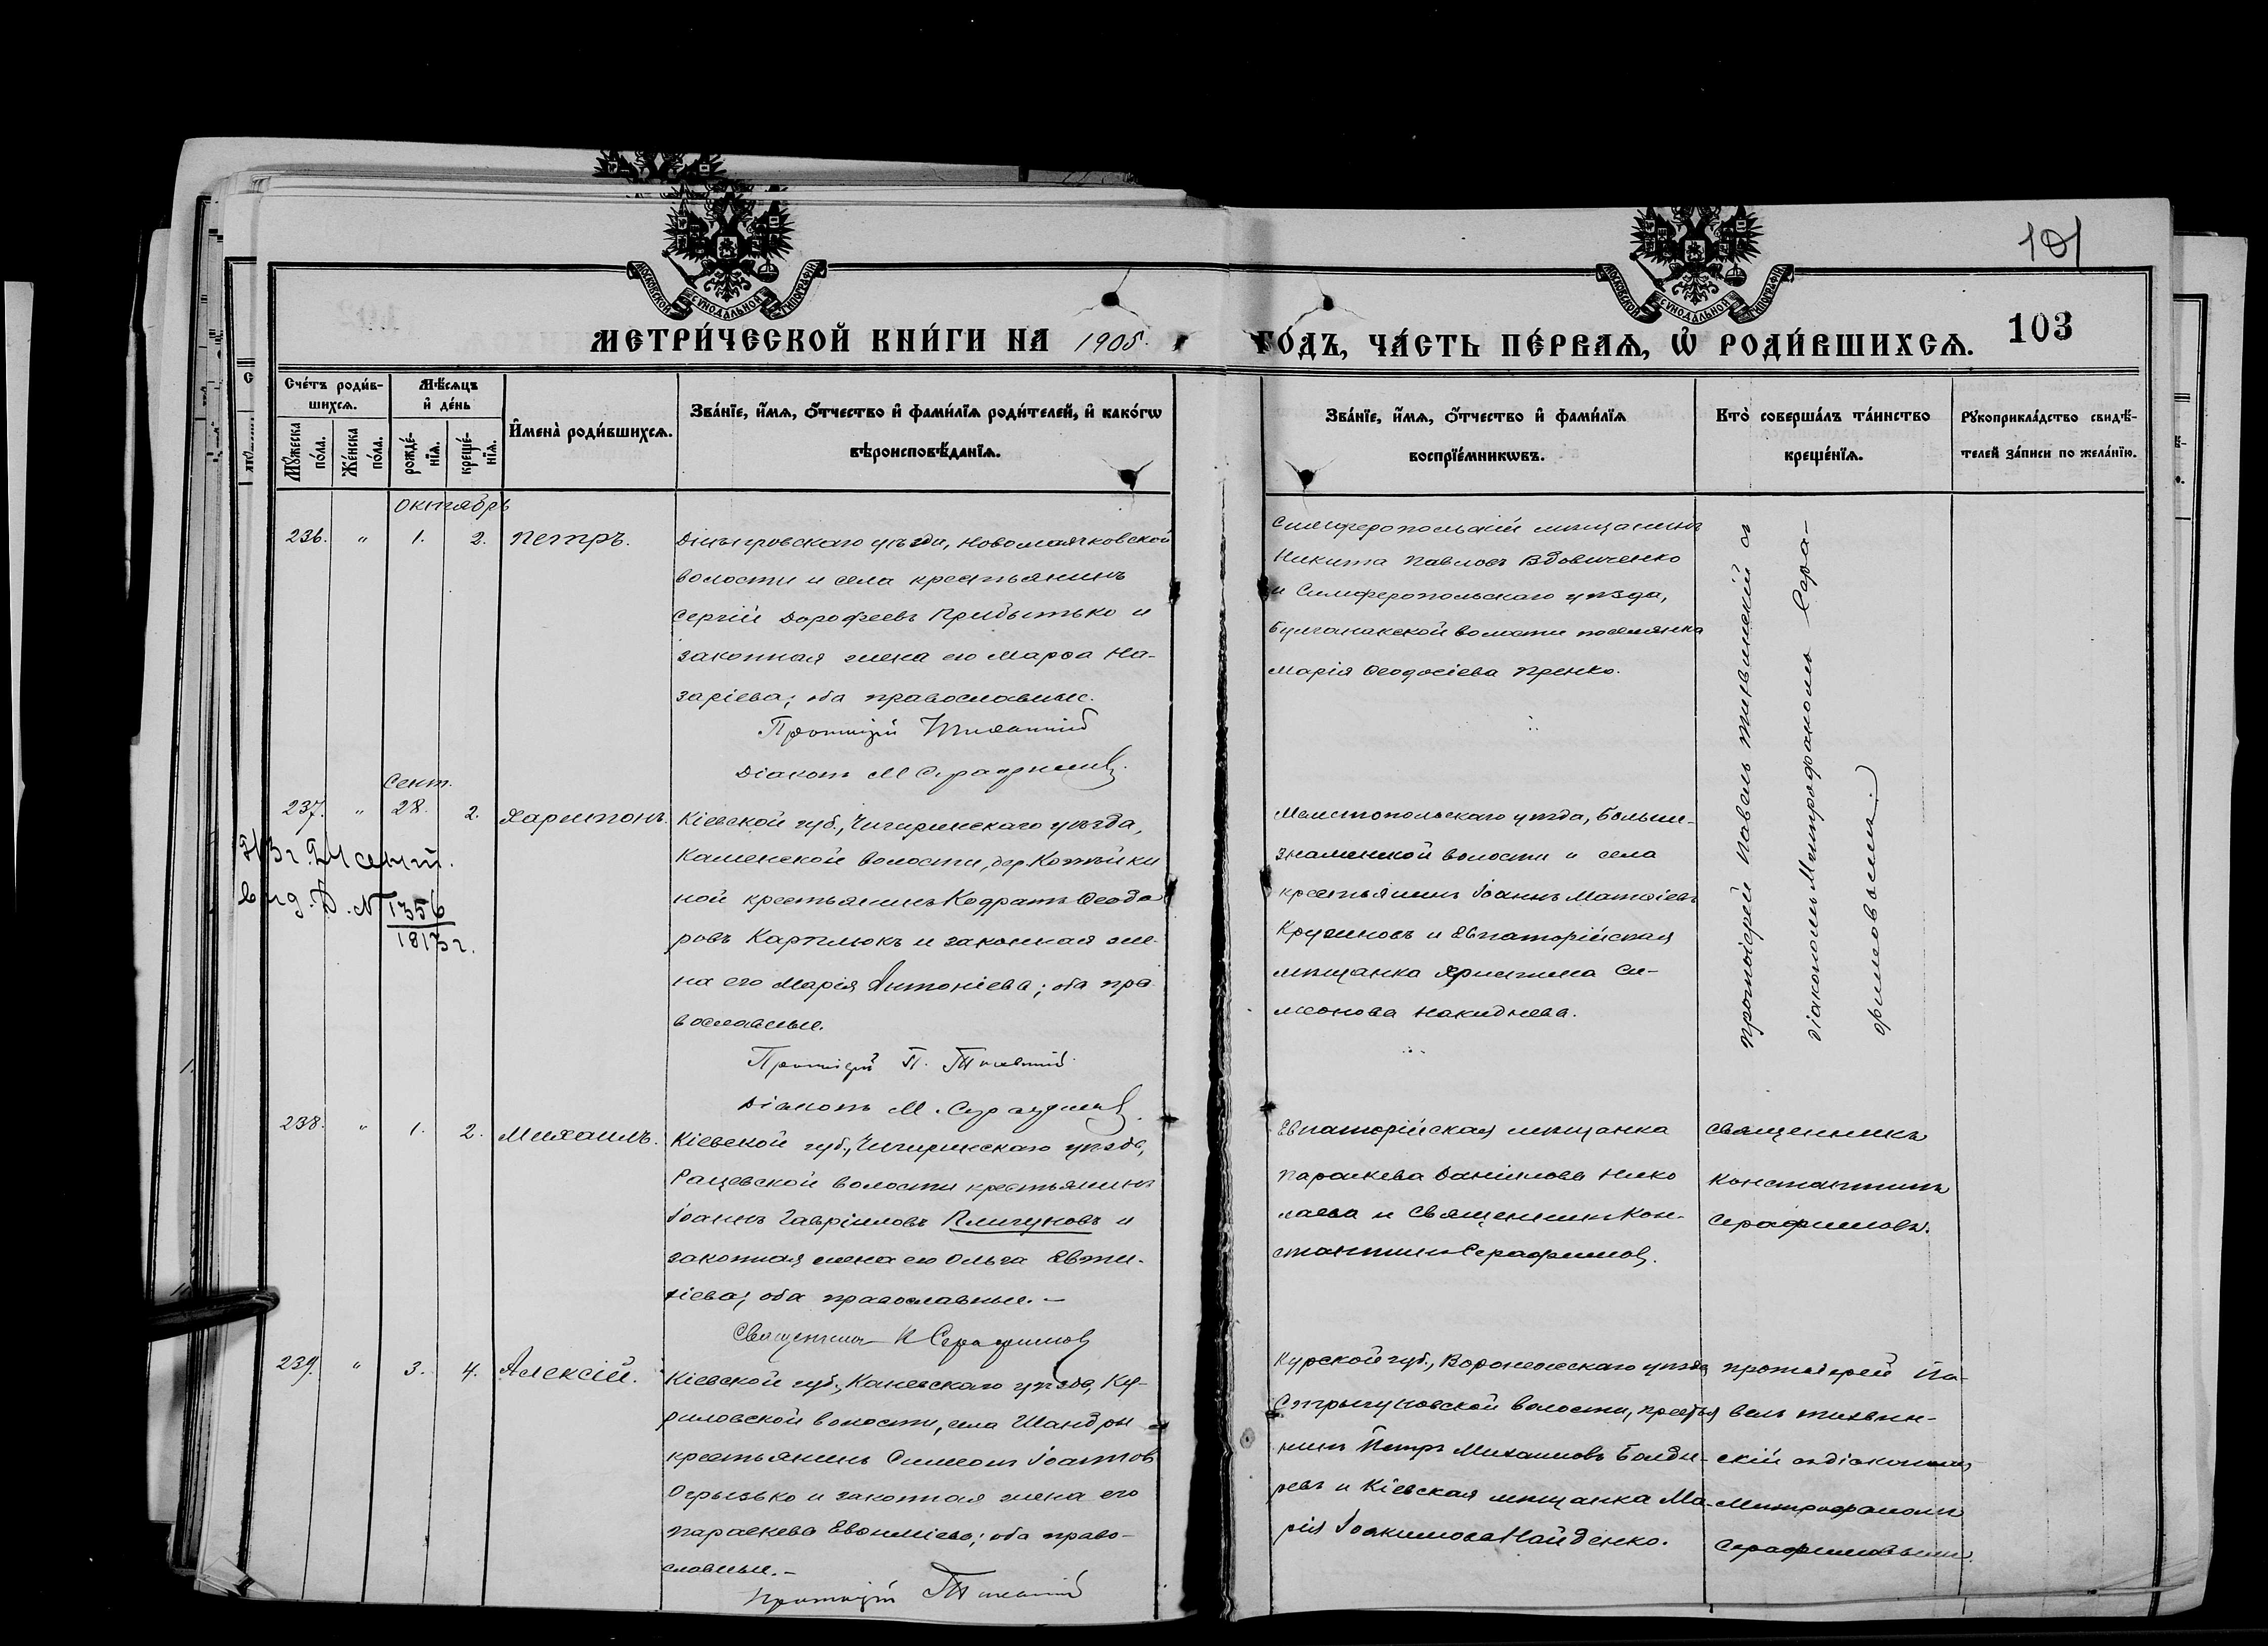 101
МОСКОВСКОЙ СУНОДАЛЬНОЙ ТИПОГРАФІИ
МОСКОВСКОЙ СУНОДАЛЬНОЙ ТИПОГРАФІИ
МЕТРИ́ЧЕСКОЙ КНИ́ГИ НА 1905. ГО́ДЪ, ЧА́СТЬ ПЕ́РВАѦ, Ѡ҆ РОДИ́ВШИХСѦ. 103
Сче́тъ роди́в-
шихсѧ.
Мꙋ́жеска по́ла.
Же́нска по́ла.
Мѣ́сѧцъ
и҆ де́нь
рожде́-
нїѧ.
креще́-
нїѧ.
И҆мена̀ роди́вшихсѧ.
Зва́нїе, и҆́мѧ, ѻ҆́тчество и҆ фами́лїѧ роди́телей, и҆ како́гѡ
вѣроисповѣ́данїѧ.
Зва́нїе, и҆́мѧ, ѻ҆́тчество и҆ фами́лїѧ
воспрїе́мникѡвъ.
Кто̀ соверша́лъ та́инство
креще́нїѧ.
Рꙋкоприкла́дство свидѣ́-
телей за́писи по жела́нїю.
октябрь
236. " 1. 2. Петръ.
Днѣпровскаго уѣзда, Новомаячковской
волости и села крестьянинъ
Сергій Дорофеевъ Прибытько и
законная жена его Марѳа На-
заріева; оба православные.
Протоіерей Тихвинскій
Діаконъ М Серафимов
Симферопольскій мѣщанинъ
Никита Павловъ Вдовиченко
и Симферопольскаго уѣзда,
Булганакской волости поселянка
Марія Ѳеодосіева Пренко.
протоіерей Павелъ Тихвинскій съ
діакономъ Митрофаномъ Сера-
фимовымъ.
Сент.
237. " 28. 2. Харитонъ.
Кіевской губ., Чигиринскаго уѣзда,
Каменской волости, дер.
ной крестьянинъ Кодратъ Ѳеодо
ровъ Карплюкъ и законная же-
на его Марія Антоніева; оба пра
вославные.
Протоіерей П. Тихвинскій
Діаконъ М. Серафимов
выд. № 1356
Мелитопольскаго уѣзда, Больше-
знаменской волости и села
крестьянинъ Іоаннъ Матѳіевъ
Кружновъ и Евпаторійская
мѣщанка Христина Си-
меонова Накиднева.
238. " 1. 2. Михаилъ.
Кіевской губ., Чигиринскаго уѣзда,
Рацевской волости крестьянинъ
Іоаннъ Гавріиловъ Плигуновъ и
законная жена его Ольга Евти-
хіева; оба православные. —
Священник К Серафимов
Евпаторійская мѣщанка
Параскева Даніилова Нико
лаева и Священникъ Кон-
стантинъ Серафимов.
Священникъ
Константинъ
Серафимовъ.
239. " 3. 4. Алексій.
Кіевской губ., Каневскаго уѣзда, Ку-
риловской волости, села Шандры
крестьянинъ Симеонъ Іоаннов
Огрызько и законная жена его
Параскева Евѳиміева; оба право-
славные. —
Протоіерей Тихвинскій
Курской губ., уѣзда
Стригуновской волости, крестья
нинъ Петръ Михаиловъ Болды-
ревъ и Кіевская мѣщанка Ма-
рія Іоакимова Найденко.
протоіерей Па-
велъ Тихвин-
скій съ діакономъ
Митрофаномъ
Серафимовымъ.